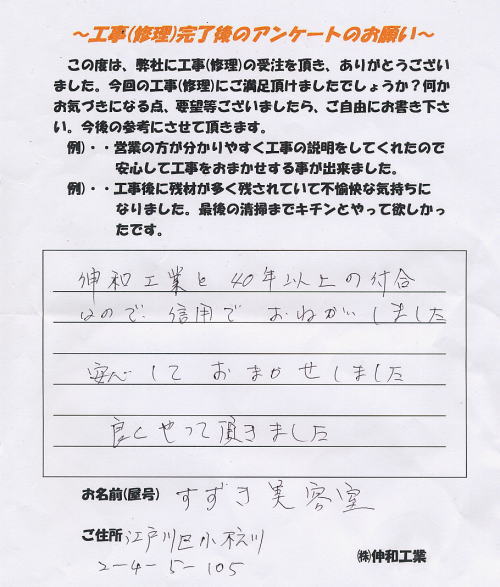 ～工事(修理)完了後のアンケートのお願い～
この度は、弊社に工事(修理)の受注を頂き、ありがとうござい
ました。今回の工事(修理)にご満足頂けましたでしょうか?何か
お気づきになる点、要望等ございましたら、ご自由にお書き下さ
い。今後の参考にさせて頂きます。
例)・・営業の方が分かりやすく工事の説明をしてくれたので
安心して工事をおまかせする事が出来ました。
例)・・工事後に残材が多く残されていて不愉快な気持ちに
なりました。最後の清掃までキチンとやって欲しかっ
たです。
伸和工業と40年以上の付合
なので信用でおねがいしました
安心しておまかせしました
良くやって頂きました
お名前(屋号) すずき美容室
ご住所 江戸川区小松川
2-4-5-105
㈱伸和工業